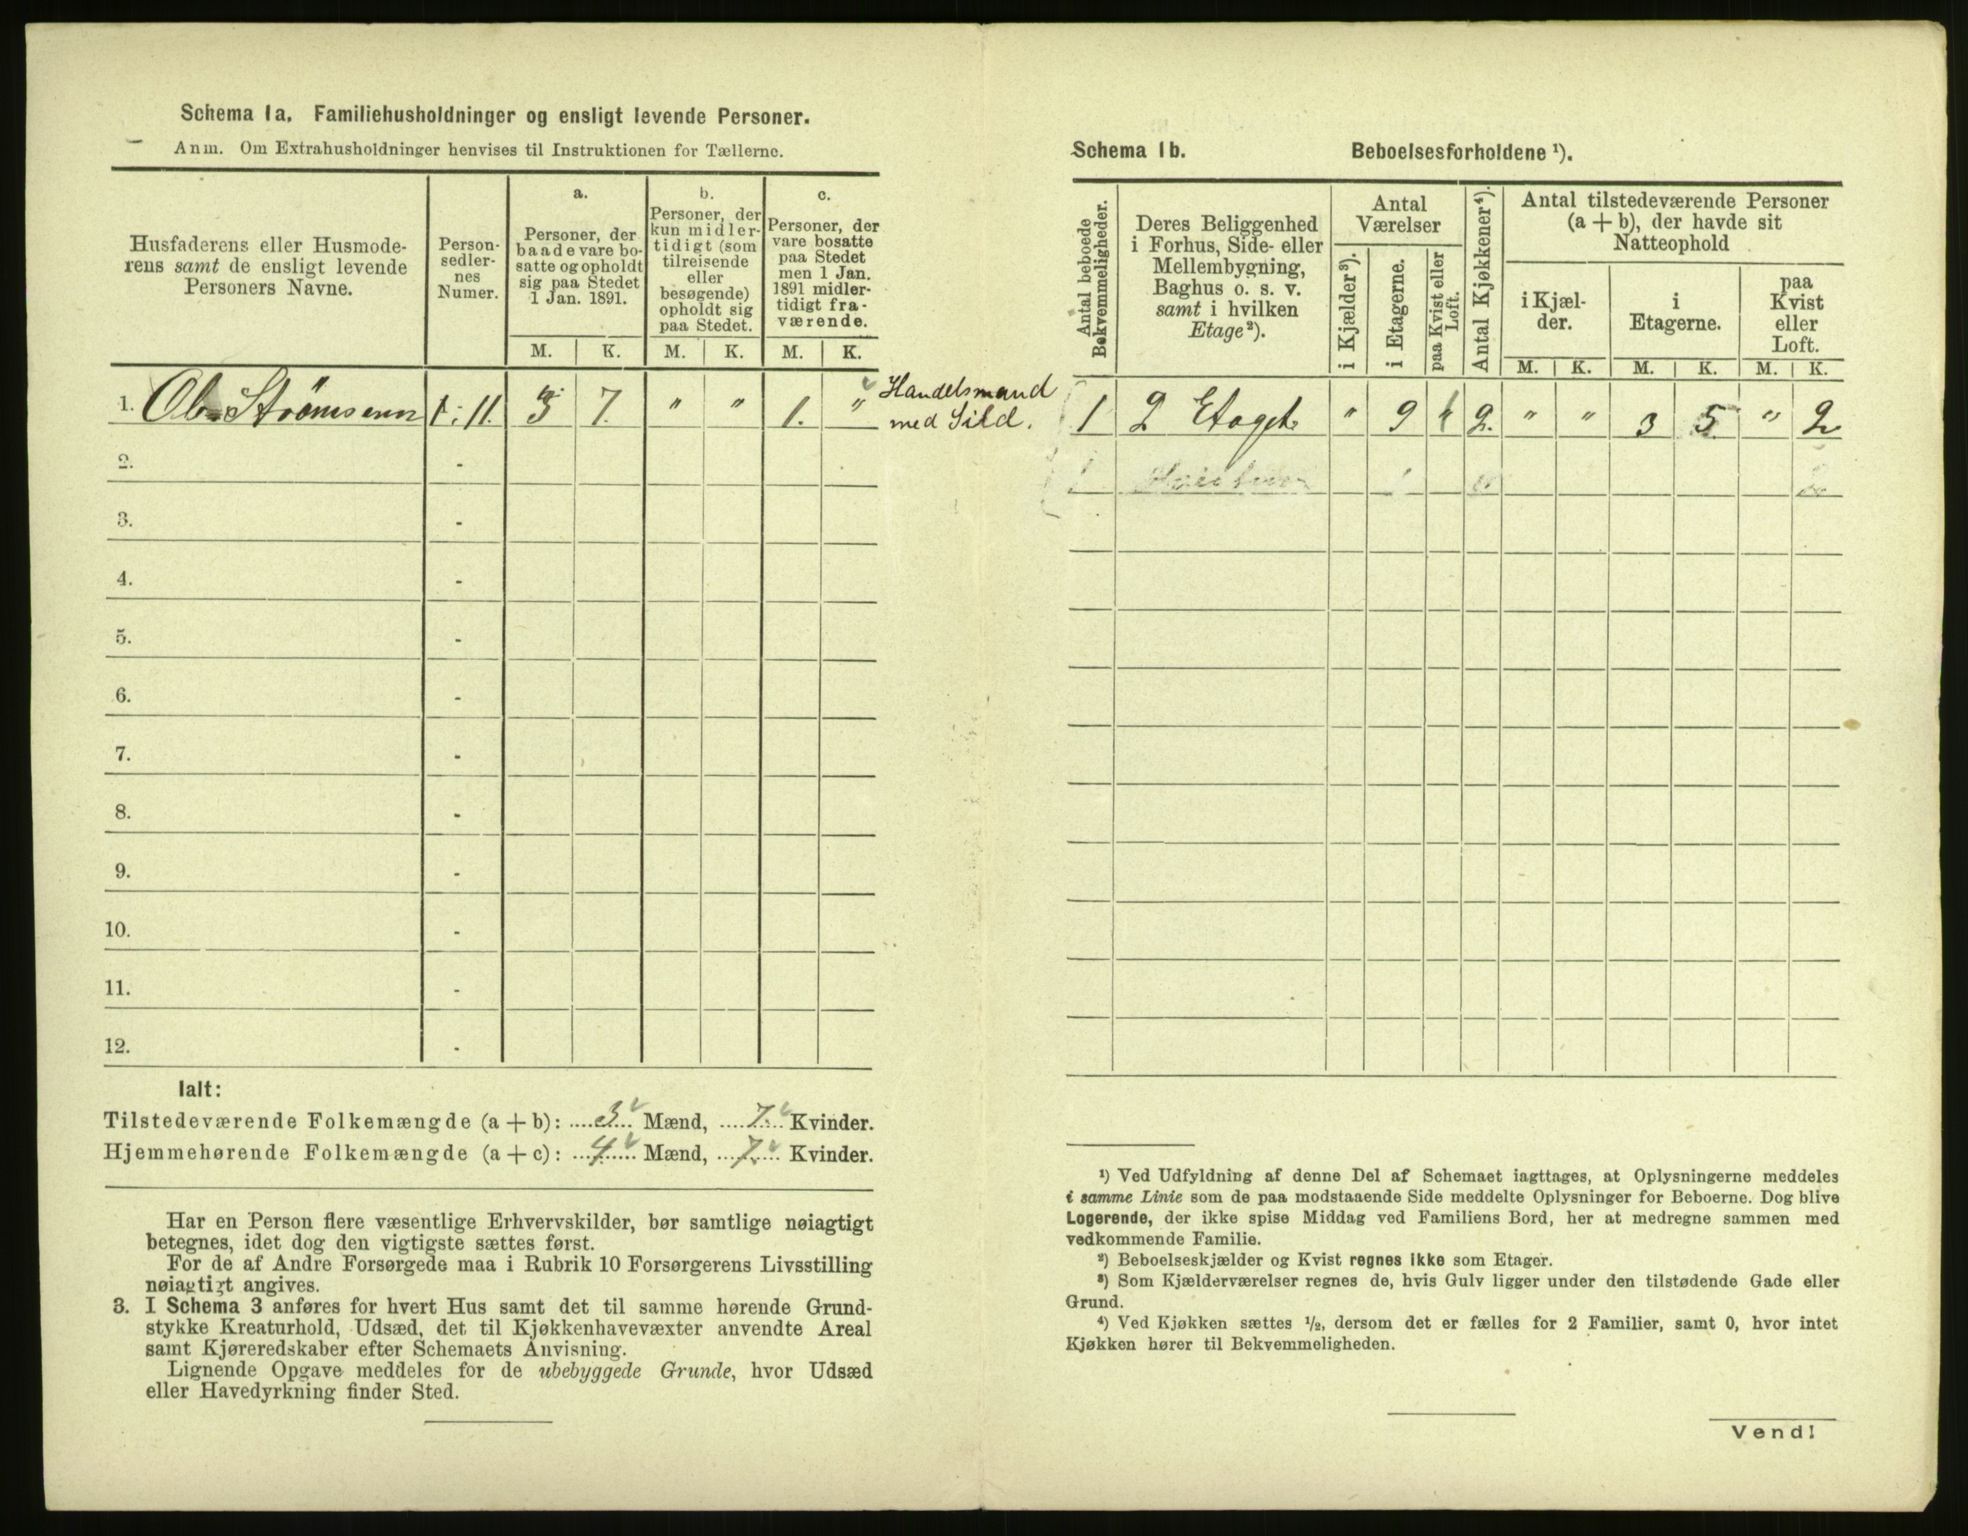 Schema 1a. Familiehusholdninger og ensligt levende Personer.
Anm. Om Extrahusholdninger henvises til Instruktionen for Tællerne.
Husfaderens eller Husmode-
rens samt de ensligt levende
Personers Navne.
Person-
sedler-
nes
Numer.
a.
Personer, der
baade vare bo-
satte og opholdt
sig paa Stedet
1 Jan. 1891.
b.
Personer, der
kun midler-
tidigt (som
tilreisende
eller
besøgende)
opholdt sig
paa Stedet.
c.
Personer, der
vare bosatte
paa Stedet
men 1 Jan.
1891 midler-
tidigt fra-
værende.
M. K. M. K. M. K.
1. Strømsenn 1-11. 3 7. " " 1. " Handelsmand
med Sild.
2. -
3. -
4. -
5. -
6. -
7. -
8. -
9. -
10. -
11. -
12. -
Ialt:
Tilstedeværende Folkemængde (a + b): 3 Mænd, 7. Kvinder.
Hjemmehørende Folkemængde (a + c): 4 Mænd, 7. Kvinder.
Har en Person flere væsentlige Erhvervskilder, bør samtlige nøiagtigt
betegnes, idet dog den vigtigste sættes først.
For de af Andre Forsørgede maa i Rubrik 10 Forsørgerens Livsstilling
nøiagtigt angives.
3. I Schema 3 anføres for hvert Hus samt det til samme hørende Grund-
stykke Kreaturhold, Udsæd, det til Kjøkkenhavevæxter anvendte Areal
samt Kjøreredskaber efter Schemaets Anvisning.
Lignende Opgave meddeles for de ubebyggede Grunde, hvor Udsæd
eller Havedyrkning finder Sted.
Schema 1b. Beboelsesforholdene ¹).
Antal beboede
Bekvemmeligheder.
Deres Beliggenhed
i Forhus, Side- eller
Mellembygning,
Baghus o. s. v.
samt i hvilken
Etage²).
Antal
Værelser
i Kjælder³).
i Etagerne.
paa Kvist eller
Loft.
Antal Kjøkkener⁴).
Antal tilstedeværende Personer
(a + b), der havde sit
Natteophold
i Kjæl-
der.
i
Etagerne.
paa
Kvist
eller
Loft.
M. K. M. K. M. K.
1 2 Etager " 9 " 2. " " 3 5 " 2
¹) Ved Udfyldning af denne Del af Schemaet iagttages, at Oplysningerne meddeles
i samme Linie som de paa modstaaende Side meddelte Oplysninger for Beboerne. Dog blive
Logerende, der ikke spise Middag ved Familiens Bord, her at medregne sammen med
vedkommende Familie.
²) Beboelseskjælder og Kvist regnes ikke som Etager.
³) Som Kjælderværelser regnes de, hvis Gulv ligger under den tilstødende Gade eller
Grund.
⁴) Ved Kjøkken sættes ½, dersom det er fælles for 2 Familier, samt 0, hvor intet
Kjøkken hører til Bekvemmeligheden.
Vend!